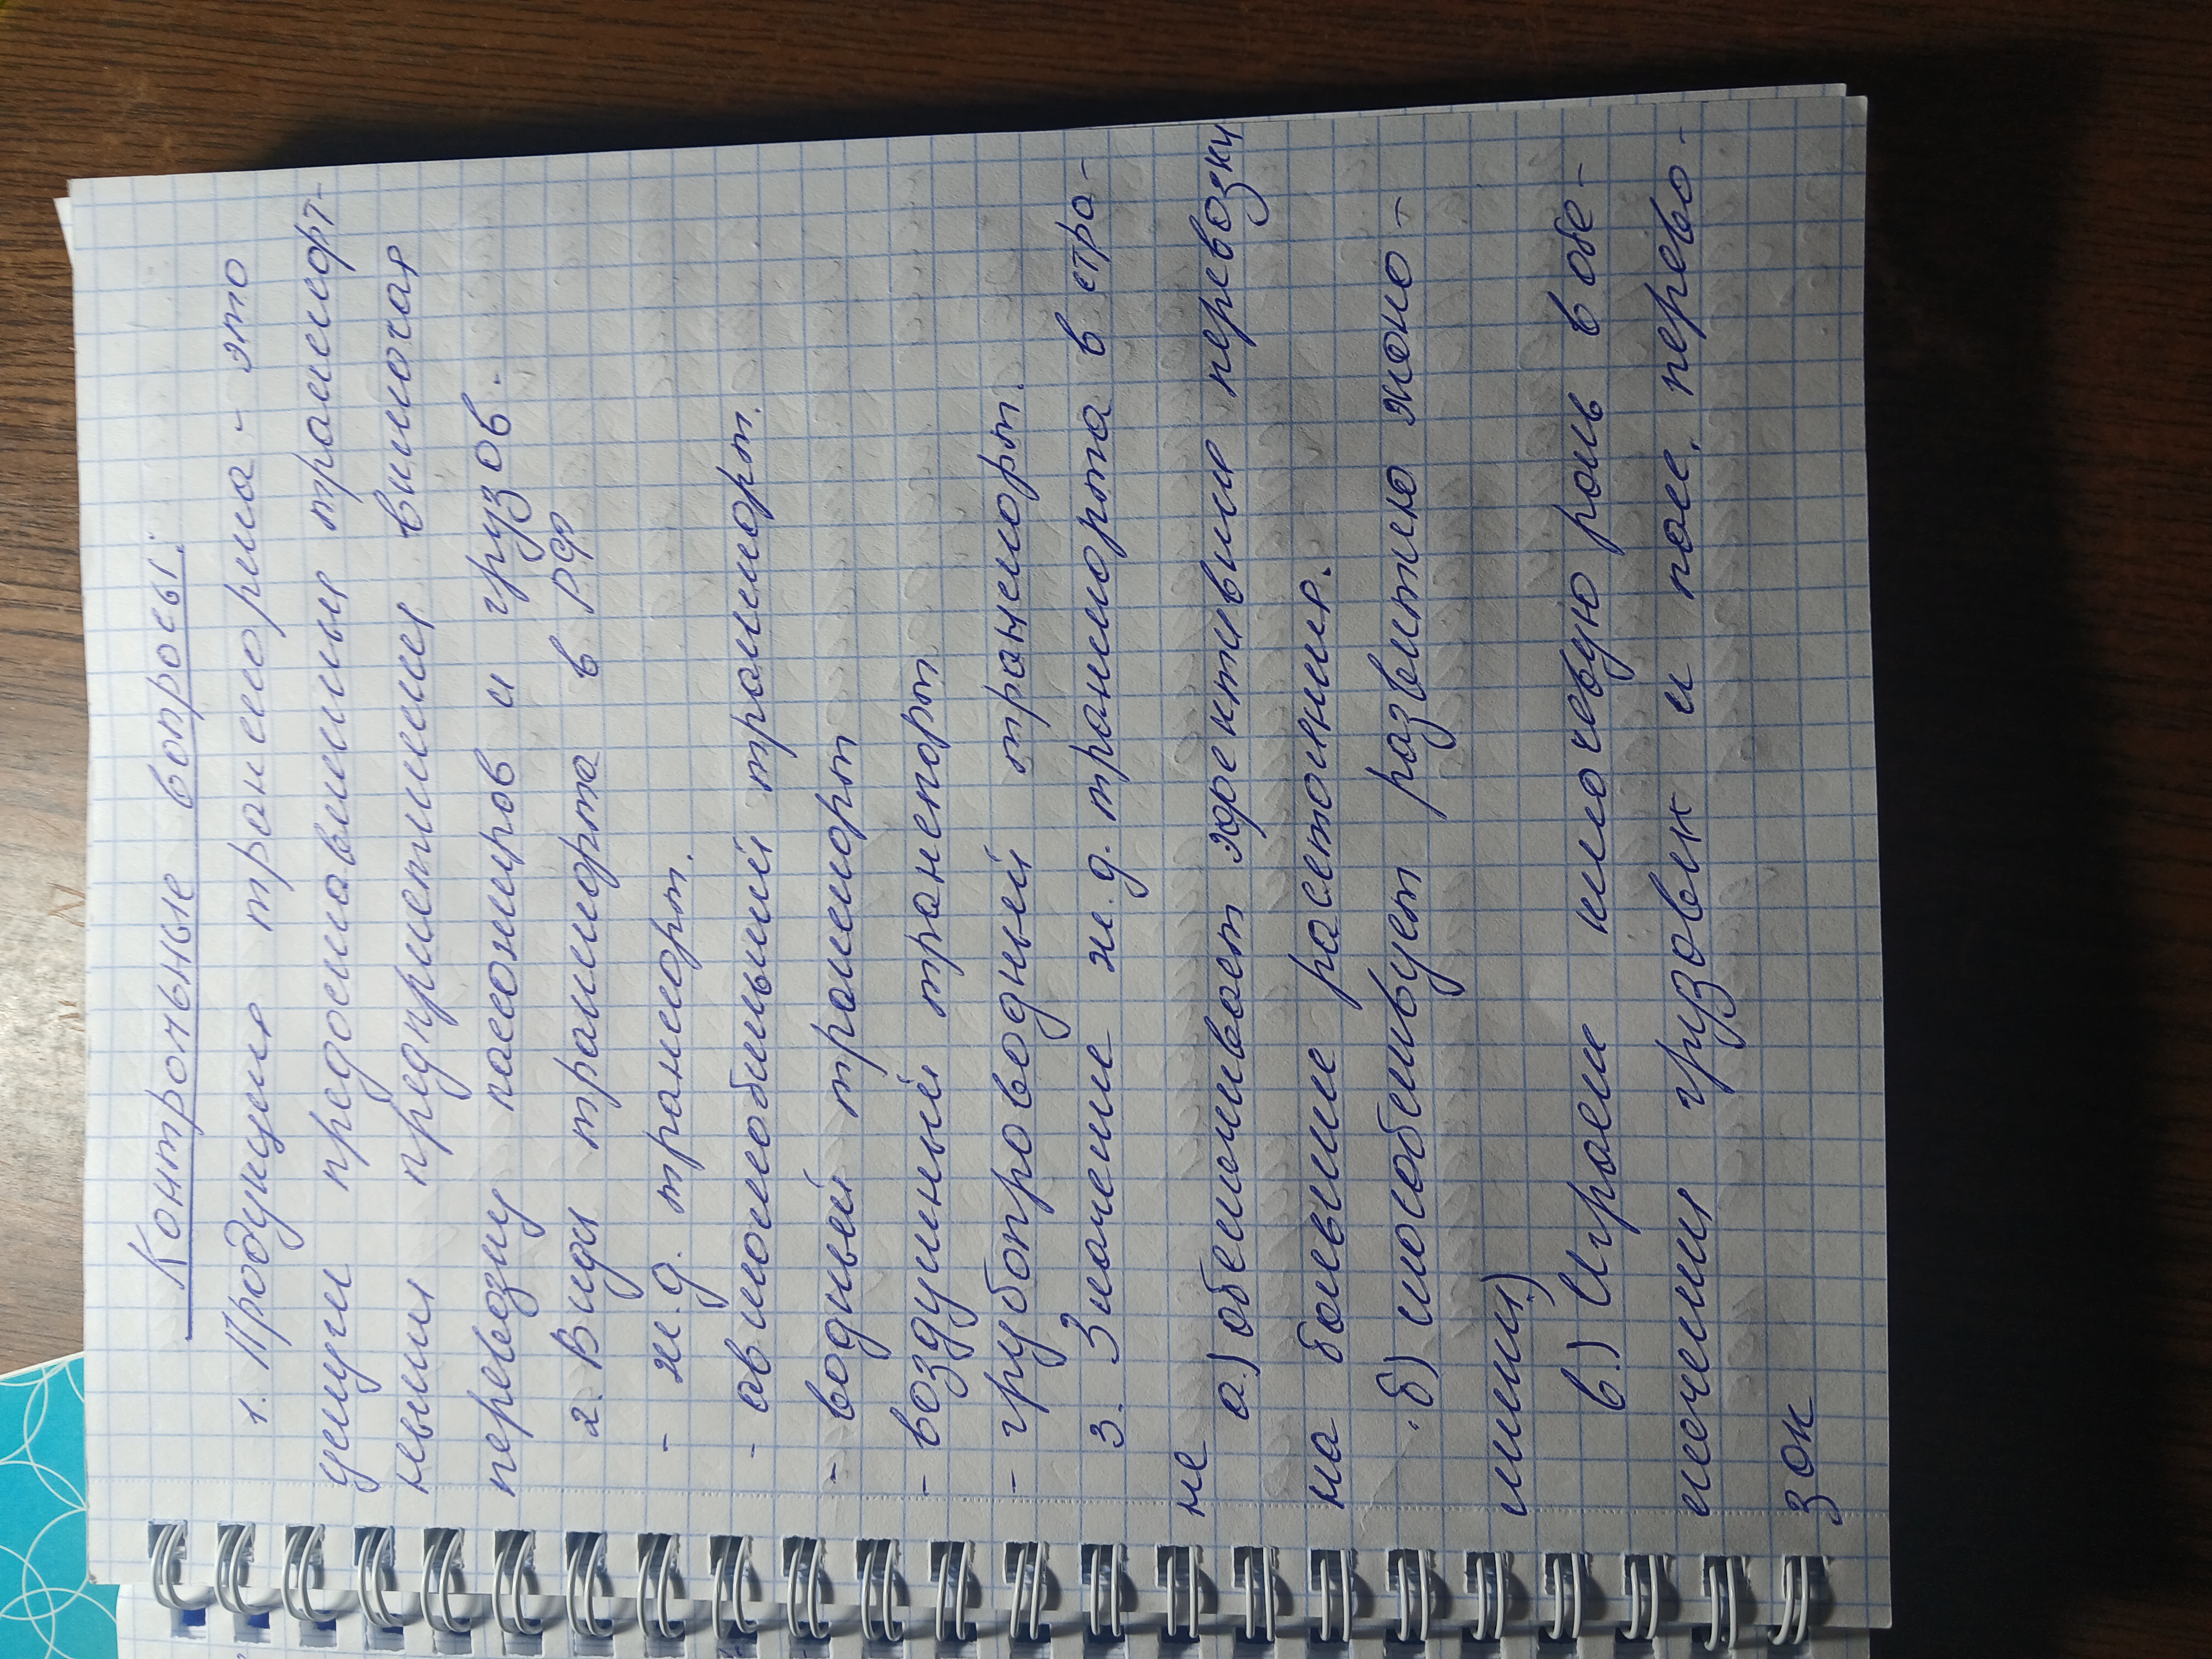 Контрольные вопросы:
1. Продукция транспорта - это
услуги предоставления транспорт-
ными предприятиями включая
перевозку пассажиров и грузов.
2. Виды транспорта в РФ
- ж.д. транспорт.
- автомобильный транспорт.
- водный транспорт
- воздушный транспорт
- трубопроводный транспорт.
3. Значение ж.д. транспорта в стра-
не
а.) обеспечивает эффективные перевозки
на большие расстояния.
б) способствует развитию эконо-
мики)
в.) Играет ключевую роль в обе-
спечении грузовых и пасс. перево-
зок